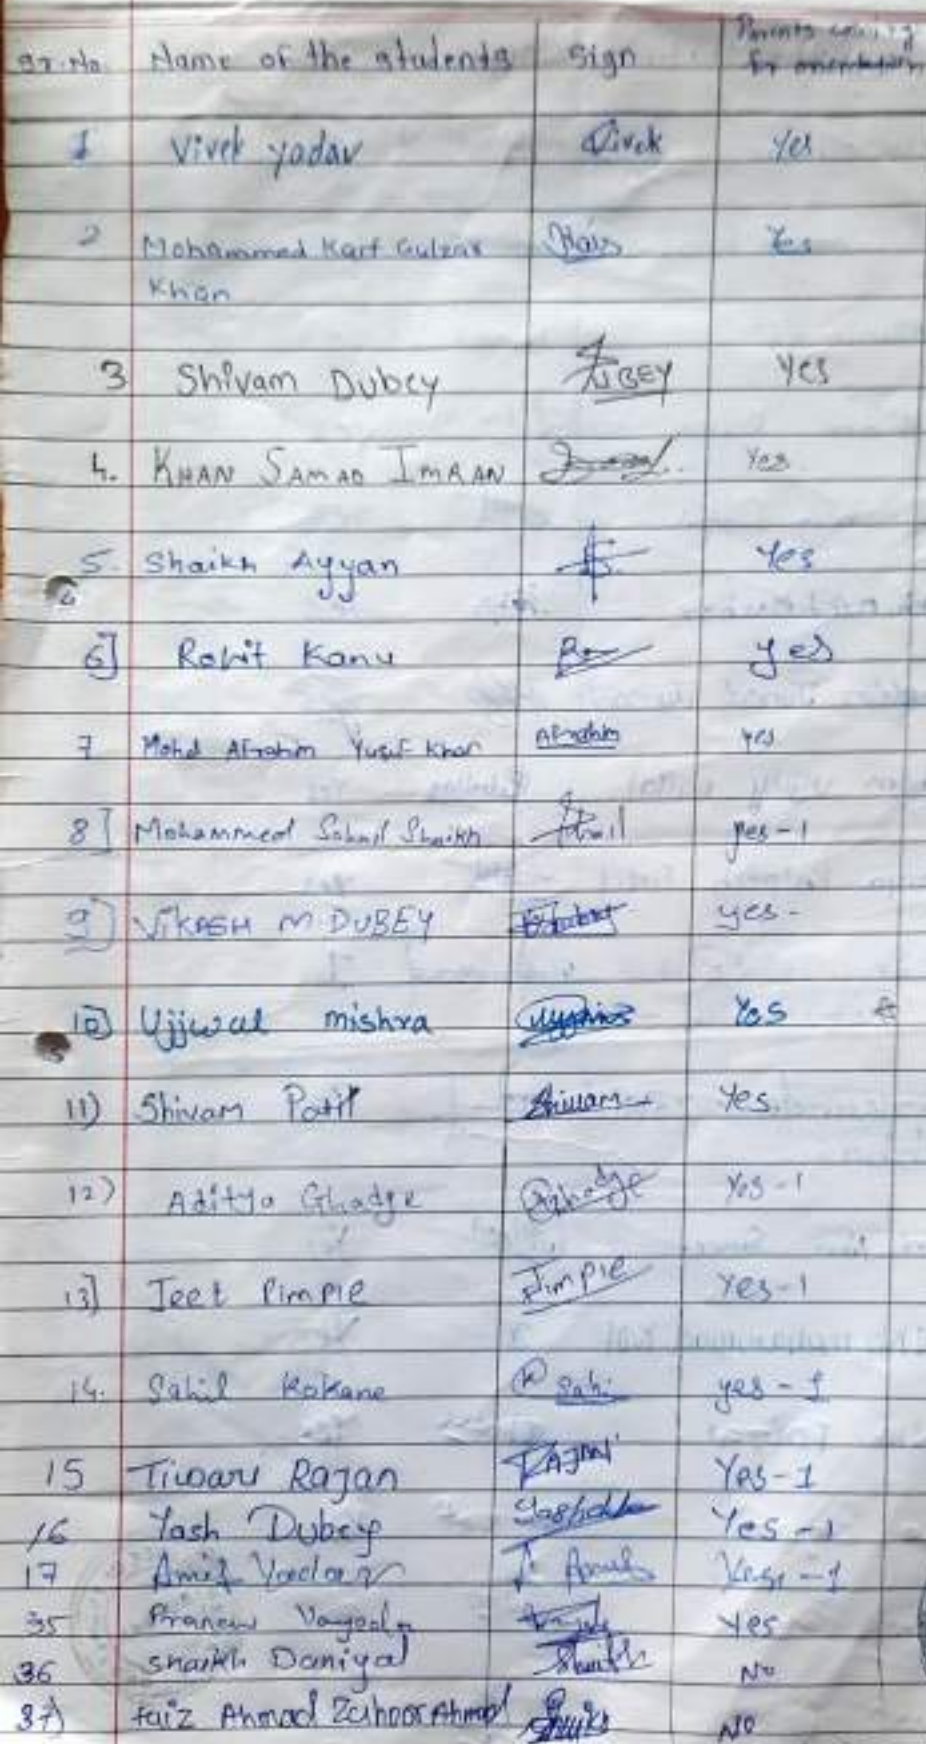 Sr.No Name of the students Sign Parents coming
for orientation
1 Vivek yadav Vivek yes
2 Mohammed Kaif Gulzar Yes
Khan
3 Shivam Dubey DUBEY Yes
4. KHAN SAMAD IMRAN Yes
5. Shaikh Ayyan Yes
6] Rohit Kanu yes
7 Mohd Afrahim Yusuf Khan Afrahim yes
8] Mohammed Sohail Shaikh yes-1
9] VIKASH M DUBEY yes-
10] Ujjwal mishra Yes
11) Shivam Patil Shivam Yes.
12) Aditya Ghadge Ghadge Yes-1
13] Jeet Pimple Pimple Yes-1
14. Sahil Kokane Sahi yes-1
15 Tiwari Rajan RAJAN Yes-1
16 Yash Dubey Yes-1
17 Amit Yadav Yes-1
35 Pranav Yes
36 Shaikh Daniyal Shaikh No
37) Faiz Ahmad Zahoor Ahmad NO